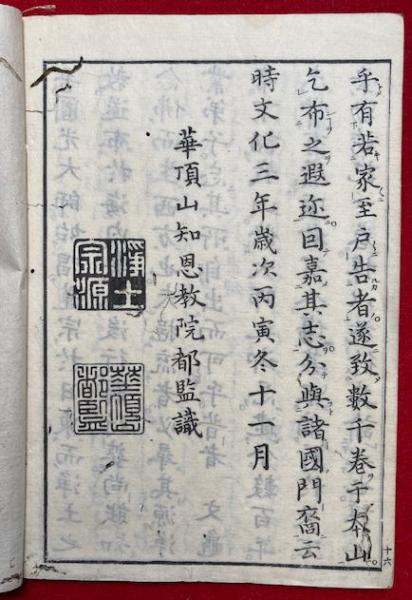 乎有若家至戸告者遂致數千卷于本山
乞布之遐迩因嘉其志分與諸國門裔云
時文化三年歳次丙寅冬十一月
華頂山知恩教院都監識
淨土
宗源
華頂
都監
十六